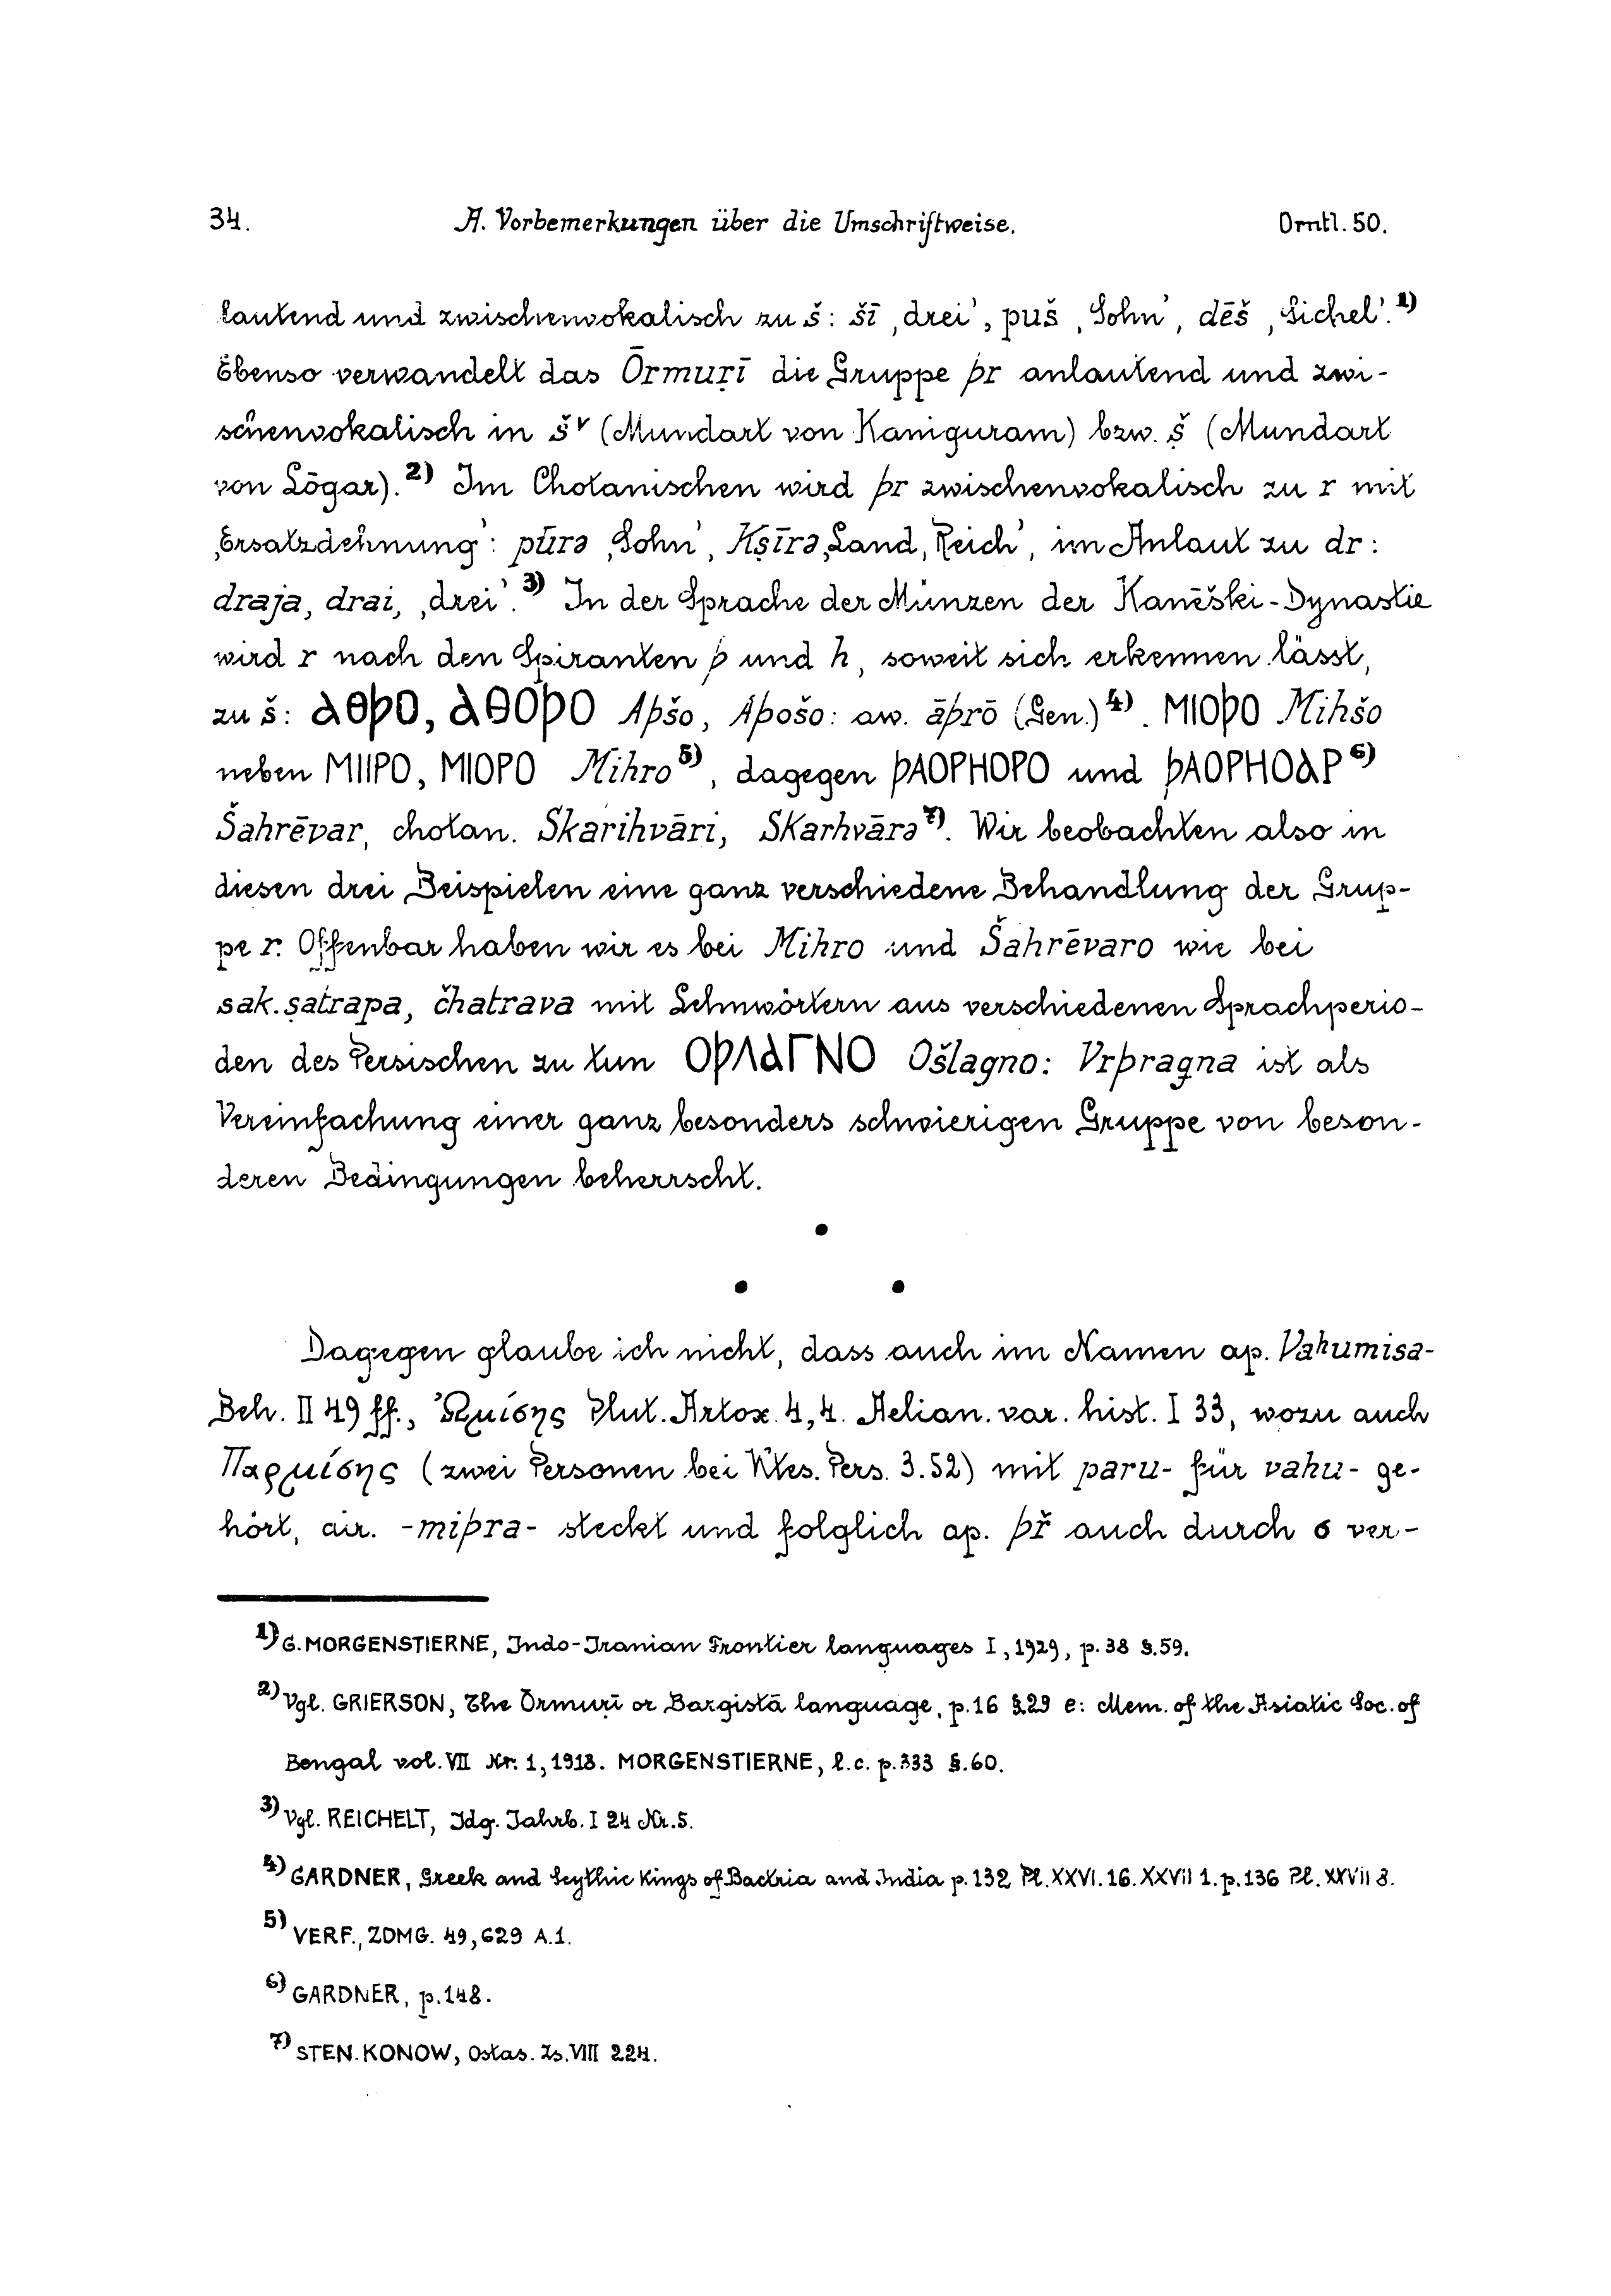 34. A. Vorbemerkungen über die Umschriftweise. Orntl. 50.
lautend und zwischenvokalisch zu š: šī ‚drei’, puš ‚Sohn’, dēš ‚Sichel’.¹⁾
Ebenso verwandelt das Ōrmuṛī die Gruppe þr anlautend und zwi-
schenvokalisch in šʳ (Mundart von Kaniguram) bzw. ṣ̌ (Mundart
von Lōgar).²⁾ Im Chotanischen wird þr zwischenvokalisch zu r mit
‚Ersatzdehnung’: pūrə ‚Sohn’, Kṣīrə ‚Land, Reich’, im Anlaut zu dr:
draja, drai, ‚drei’.³⁾ In der Sprache der Münzen der Kanēški-Dynastie
wird r nach den Spiranten þ und h, soweit sich erkennen lässt,
zu š: ΑθϷΟ, ΑΘΟϷΟ Aþšo, Aþošo: aw. āþrō (Gen.)⁴⁾. ΜΙΟϷΟ Mihšo
neben ΜΙΙΡΟ, ΜΙΟΡΟ Mihro⁵⁾, dagegen ϷΑΟΡΗΟΡΟ und ϷΑΟΡΗΟΑΡ⁶⁾
Šahrēvar, chotan. Skarihvāri, Skarhvārə⁷⁾. Wir beobachten also in
diesen drei Beispielen eine ganz verschiedene Behandlung der Grup-
pe r. Offenbar haben wir es bei Mihro und Šahrēvaro wie bei
sak. ṣatrapa, čhatrava mit Lehnwörtern aus verschiedenen Sprachperio-
den des Persischen zu tun ΟϷΛΑΓΝΟ Ošlagno: Vrþragna ist als
Vereinfachung einer ganz besonders schwierigen Gruppe von beson-
deren Bedingungen beherrscht.
Dagegen glaube ich nicht, dass auch im Namen ap. Vaʰumisa-
Beh. II 49 ff., Ὠμίσης Plut. Artox. 4,4. Aelian. var. hist. I 33, wozu auch
Παρμίσης (zwei Personen bei Ktes. Pers. 3.52) mit paru- für vahu- ge-
hört, air. -miþra- steckt und folglich ap. þř auch durch σ ver-
¹⁾ G. MORGENSTIERNE, Indo-Iranian Frontier languages I, 1929, p. 38 §. 59.
²⁾ Vgl. GRIERSON, The Ōrmuṛī or Bargistā language, p. 16 §. 29 e: Mem. of the Asiatic Soc. of
Bengal vol. VII Nr. 1, 1918. MORGENSTIERNE, l. c. p. 333 §. 60.
³⁾ Vgl. REICHELT, Idg. Jahrb. I 24 Nr. 5.
⁴⁾ GARDNER, Greek and Scythic Kings of Bactria and India p. 132 Pl. XXVI. 16. XXVII 1. p. 136 Pl. XXVII 8.
⁵⁾ VERF., ZDMG. 49, 629 A.1.
⁶⁾ GARDNER, p. 148.
⁷⁾ STEN. KONOW, Ostas. Zs. VIII 224.